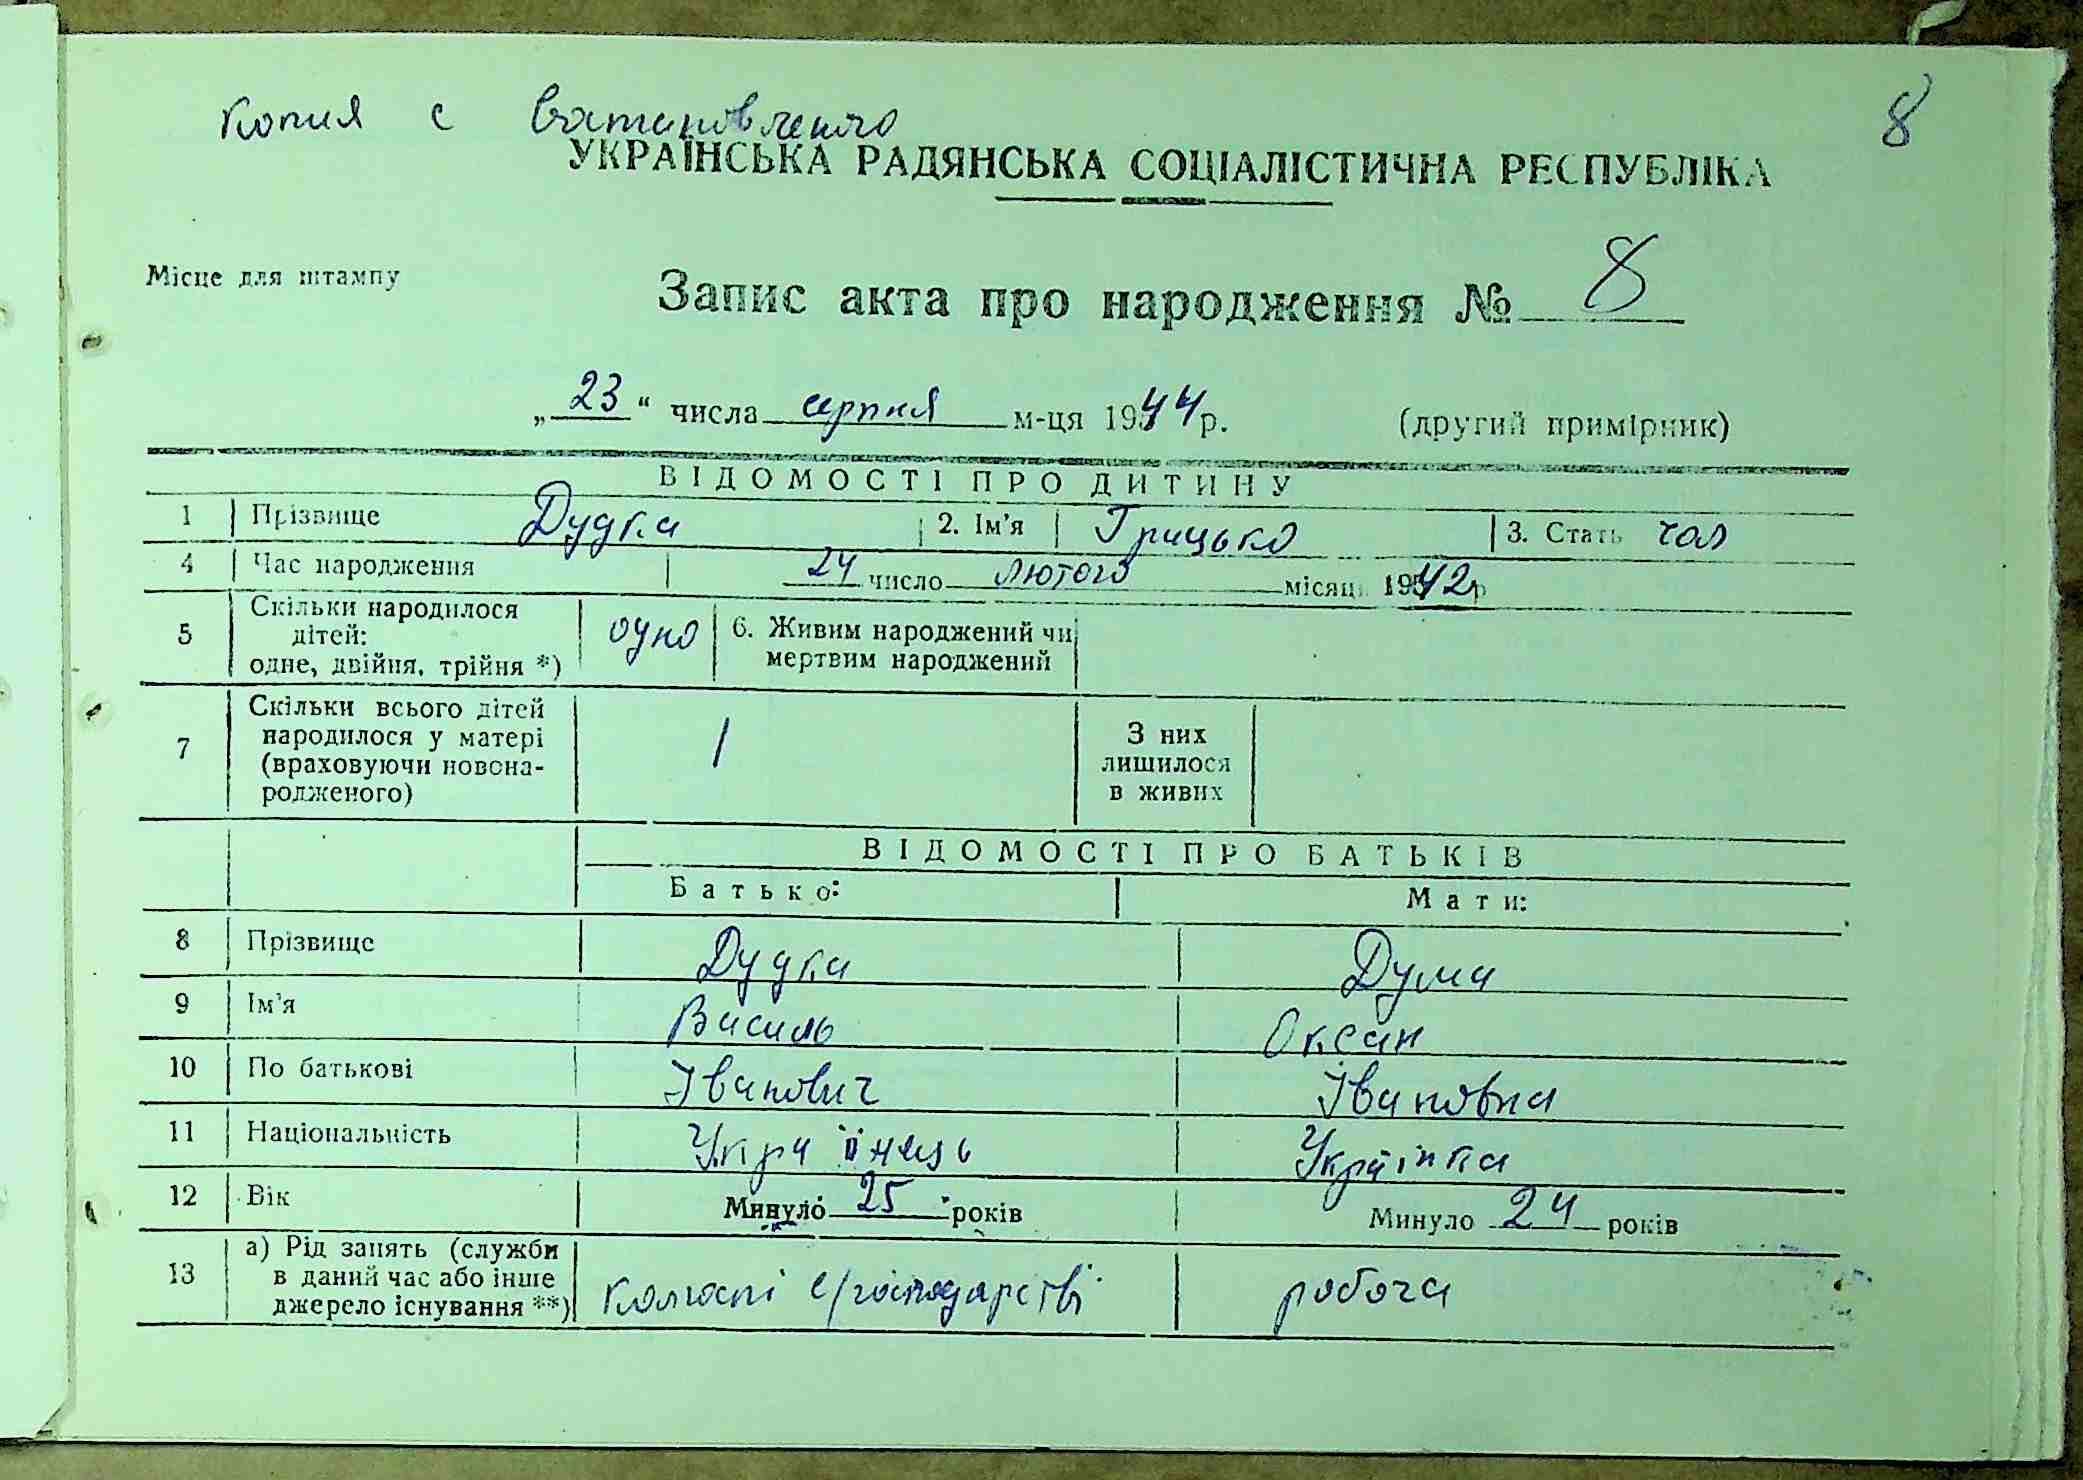 Копия с
8
УКРАЇНСЬКА РАДЯНСЬКА СОЦІАЛІСТИЧНА РЕСПУБЛІКА
Місце для штампу
Запис акта про народження № 8
„23“ числа серпня м-ця 1944р. (другий примірник)
ВІДОМОСТІ ПРО ДИТИНУ
1 Прізвище Дудка 2. Ім'я Грицько 3. Стать чол
4 Час народження 24 число лютого місяця 1942р
5 Скільки народилося дітей: одне, двійня, трійня *) одно 6. Живим народжений чи мертвим народжений
7 Скільки всього дітей народилося у матері (враховуючи новонародженого) 1 З них лишилося в живих
ВІДОМОСТІ ПРО БАТЬКІВ
Батько: Мати:
8 Прізвище Дудка Дума
9 Ім'я Василь Оксан
10 По батькові Іванович Івановна
11 Національність Украïнець Украінка
12 Вік Минуло 25 років Минуло 24 років
13 а) Рід занять (служби в даний час або інше джерело існування **) с/господарстві робоча